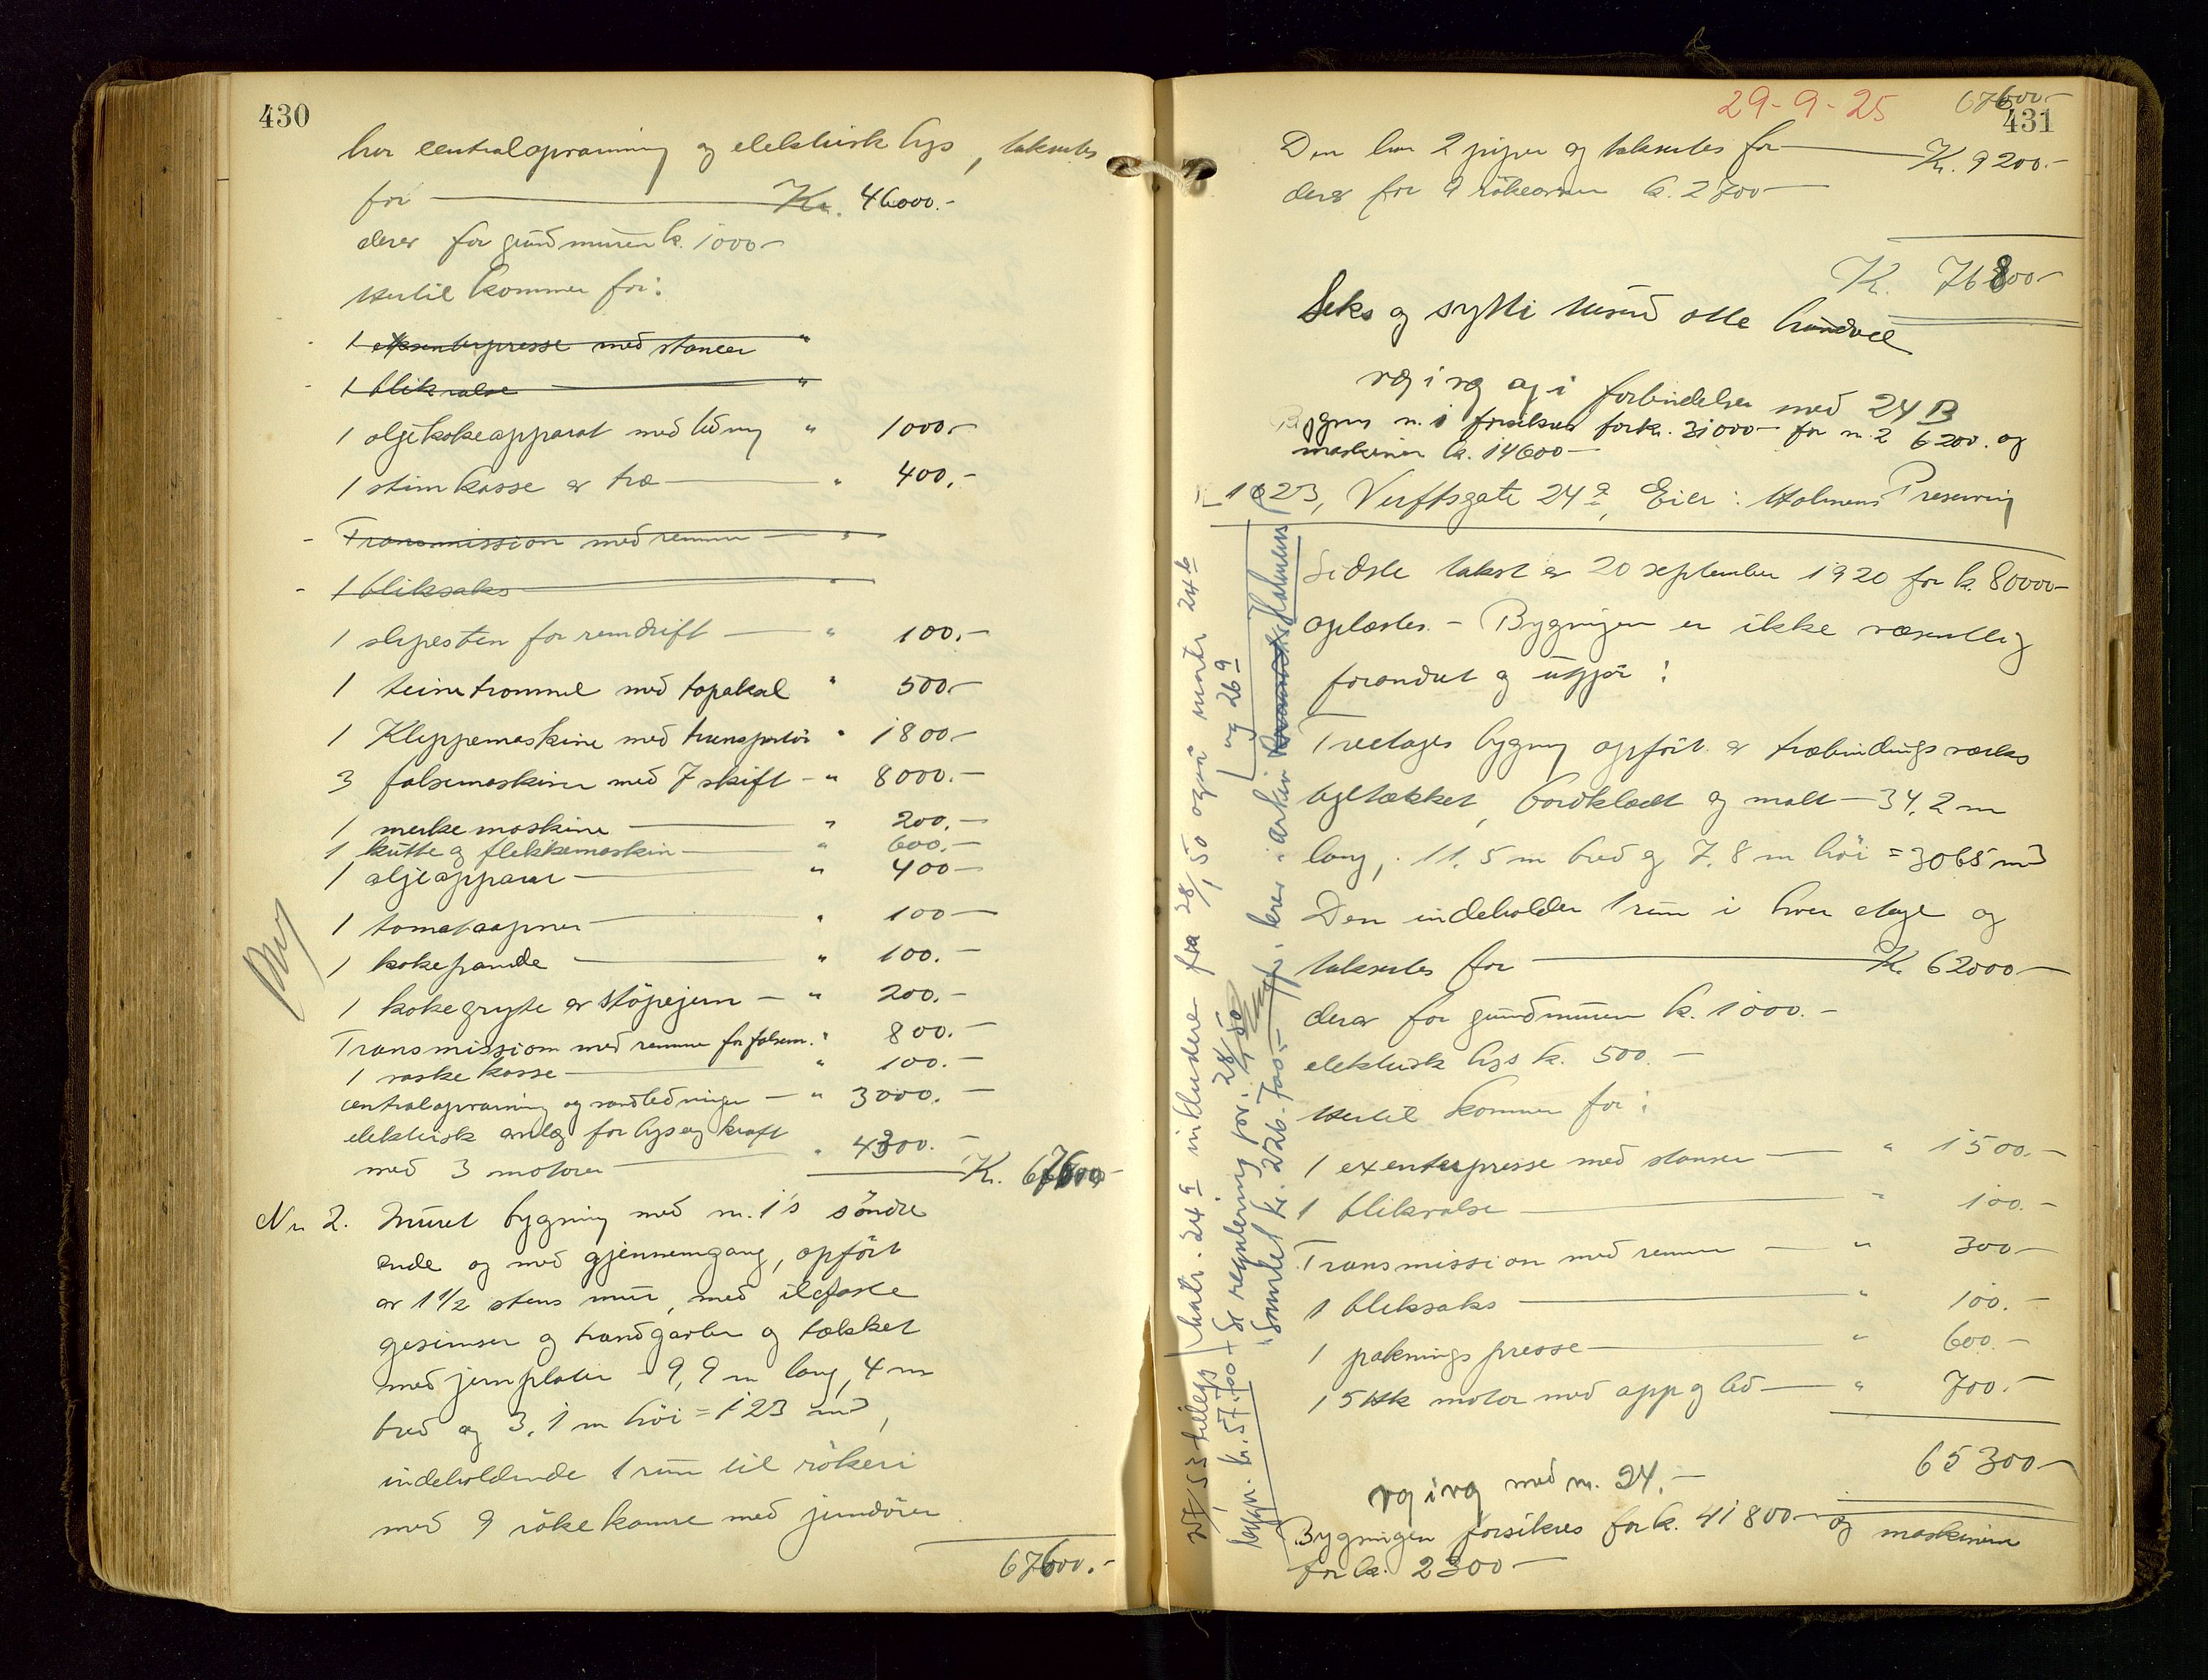 430
har centralopvarming og elektrisk lys, takseres
for Kr. 46000.-
derav for grundmuren k. 1000-
Hertil kommer for:
1 eksenterpresse med stanser "
1 blikvalse "
1 oljekokeapparat med ledning " 1000.-
1 stimkasse av træ " 400.-
Transmission med remmer "
1 bliksaks "
1 slipesten for remdrift " 100.-
1 teinetrommel med topaksel " 500.-
1 Klippemaskine med transportør " 1800.-
3 falsemaskiner med 7 skift " 8000.-
1 merkemaskine " 200.-
1 kutte og flekkemaskin " 600.-
1 oljeapparat " 400-
1 tomataapner " 100-
1 kokepande " 100.
1 kokegryte av støpejern " 200.-
Transmission med remmer for falsem. " 800.-
1 vaskekasse " 100.-
centralopvarming og vandledninger " 3000.-
elektrisk anlæg for lys og kraft
med 3 motorer " 4300.- Kr. 67600-
Nr 2. Muret bygning med nr. 1's søndre
ende og med gjennemgang, opført
av 1 1/2 stens mur, med ildfaste
gesimser og brandgavler og tækket
med jernplater - 9,9 m lang, 4 m
bred og 3,1 m høi = 123 m3,
indeholdende 1 rum til røkeri
med 9 røkekamre med jerndører
67600.-
29-9-25
67600-
431
Den har 2 piper og takseres for Kr. 9200.-
derav for 9 røkeovner k. 2700-
Kr. 76800-
Seks og sytti tusend otte hundrede
væg i væg og i forbindelse med 24 B
Bygns nr. 1 forsikres for kr. 31000- for nr. 2 6200. og
maskiner k. 14600-
1623, Verftsgate 24 a, Eier: Holmens Preserving
Sidste takst av 20 september 1920 for k. 80000-
oplæstes. - Bygningen er ikke væsentlig
forandret og utgjør:
Treetages bygning opført av træbindingsverks
tegltækket, bordklædt og malt - 34,2 m
lang, 11,5 m bred og 7,8 m høi = 3065 m3
Den indeholder 1 rum i hver etage og
takseres for Kr. 62000-
derav for grundmuren k. 1000.-
elektrisk lys k. 500.-
Hertil kommer for:
1 exenterpresse med stanser " 1500.-
1 blikvalse " 100.-
Transmission med remmer " 300-
1 bliksaks " 100.-
1 pakningspresse " 600.-
1 5 Hk motor med app og led " 700.-
65300-
væg i væg med nr. 24.-
Bygningen forsikres for k. 41800- og maskinene
for k. 2300-
matr. 24 a inkludere fra 28/1 50 også matr 24 b
og 26 a
Se regulering for. 28/1 50
Samlet kr. 226.700.-